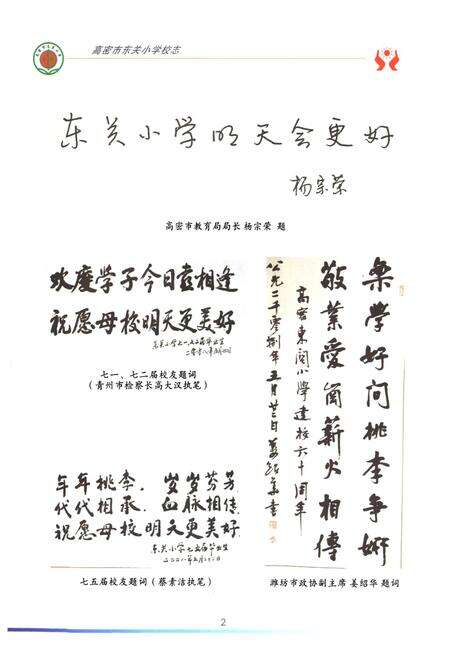 高密市东关小学校志
东关小学明天会更好
杨宗荣
高密市教育局局长 杨宗荣 题
欢度学子今日喜相逢
祝愿母校明天更美好
东关小学七一、七二届毕业生
二零零八年
七一、七二届校友题词
(青州市检察长高大汉执笔)
年年桃李，岁岁芬芳
代代相承，血脉相传
祝愿母校明天更美好
东关小学七五届毕业生
七五届校友题词(蔡素洁执笔)
乐学好问桃李争妍
敬业爱岗薪火相傳
高密東關小學建校六十周年
公元二千零捌年五月廿三日姜绍华書
潍坊市政协副主席 姜绍华 题词
2